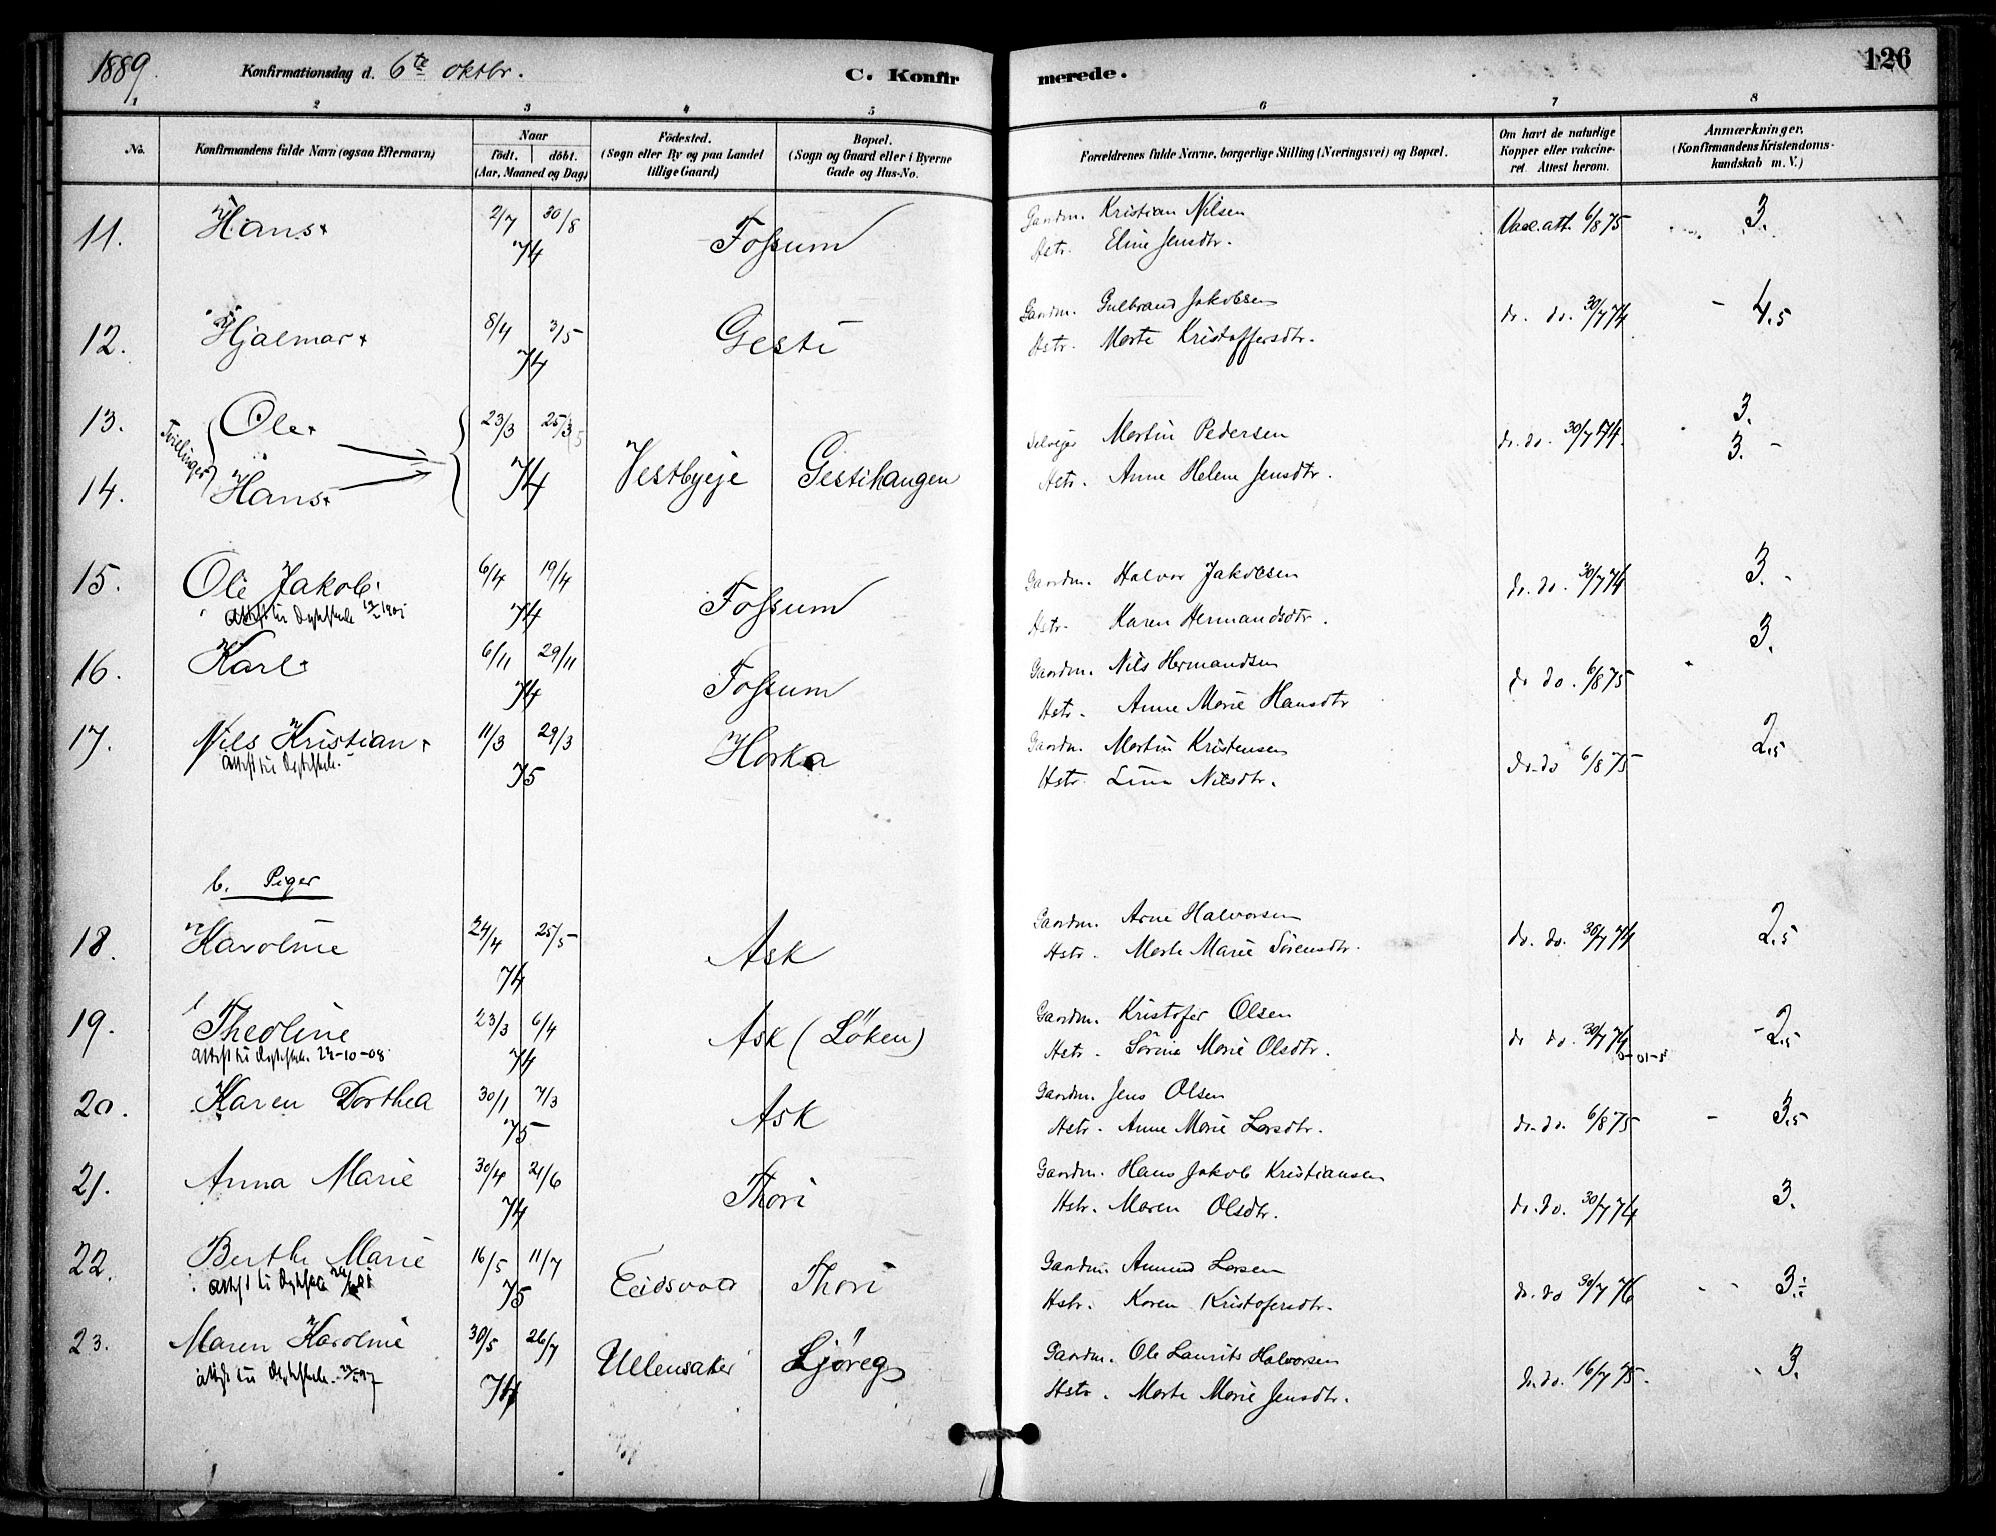 1889. Konfirmationsdag d. 6te oktbr. C. Konfirmerede. 126
1 2 3 4 5 6 7 8
No. Konfirmandens fulde Navn (ogsaa Efternavn) Naar födt. döbt. (Aar, Maaned og Dag) Födested. (Sogn eller By og paa Landet tillige Gaard) Bopæl. (Sogn og Gaard eller i Byerne Gade og Hus-No. Forældrenes fulde Navne, borgerlige Stilling (Næringsvei) og Bopæl. Om havt de naturlige Kopper eller vakcineret. Attest herom. Anmærkninger, (Konfirmandens Kristendomskundskab m. V.)
11. Hans 2/7 30/8 74 Fossum Gaardm. Kristian Nilsen Vacc. att. 6/8 75 3.
Hstr. Eline Jensdtr.
12. Hjalmar 8/4 3/5 74 Gesti Gaardm. Gulbrand Jakobsen do. do. 30/7 74 4.5
Hstr. Marte Kristoffersdtr.
13. Ole 23/3 25/5 Martin Pedersen do. do. 30/7 74. 3.
Tvillinger 74 Vestbyeje Gestihaugen 3.
14. Hans Hstr. Anne Helene Jensdtr.
15. Ole Jakob 6/4 19/4 74 Fossum Gaardm. Halvor Jakobsen do. do. 30/7 74 3.
Hstr. Karen Hermandsdtr.
16. Karl 6/11 29/11 74 Fossum Gaardm. Nils Hermandsen do do. 6/8 75 3.
Hstr. Anne Marie Hansdtr
17. Nils Kristian 11/3 29/3 75 Horka Gaardm. Martin Kristensen do. do 6/8 75 2.5
Hstr. Lina Nilsdtr.
b. Piger
18. Karoline 24/4 25/5 74 Ask Gaardm. Arne Halvorsen do. do. 30/7 74 2.5
Hstr. Marte Marie Sörensdtr.
19. Theoline 23/3 6/4 74 Ask (Löken) Gaardm. Kristofer Olsen do do. 30/7 74 2.5
22-10-08. Hstr. Sörine Marie Olsdtr.
20. Karen Dorthea 30/1 7/3 75 Ask Gaardm. Jens Olsen do. do. 6/8 75 3.5
Hstr. Anne Marie Larsdtr.
21. Anna Marie 30/4 21/6 74 Thori Gaardm. Hans Jakob Kristiansen do. do. 30/7 74 3.
Hstr. Maren Olsdtr.
22. Berthe Marie 16/5 11/7 75 Eidsvold Thori Gaardm. Amund Larsen do. do 30/7 76 3÷
Hstr. Karen Kristofersdtr.
23. Maren Karoline 30/5 26/7 74 Ullensaker Ljöreg Gaardm. Ole Laurits Halvorsen do. do. 16/7 75. 3.
Hstr. Marte Marie Jensdtr.